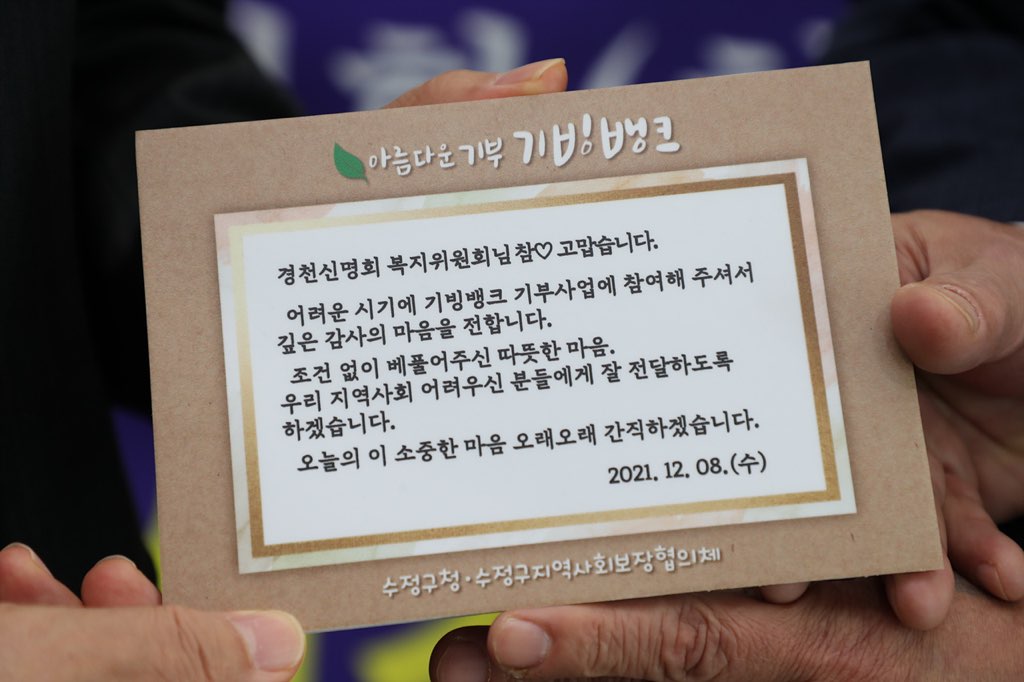 아름다운 기부 기빙뱅크
경천신명회 복지위원회님 참♡ 고맙습니다.
어려운 시기에 기빙뱅크 기부사업에 참여해 주셔서
깊은 감사의 마음을 전합니다.
조건 없이 베풀어주신 따뜻한 마음.
우리 지역사회 어려우신 분들에게 잘 전달하도록
하겠습니다.
오늘의 이 소중한 마음 오래오래 간직하겠습니다.
2021. 12. 08.(수)
수정구청·수정구지역사회보장협의체